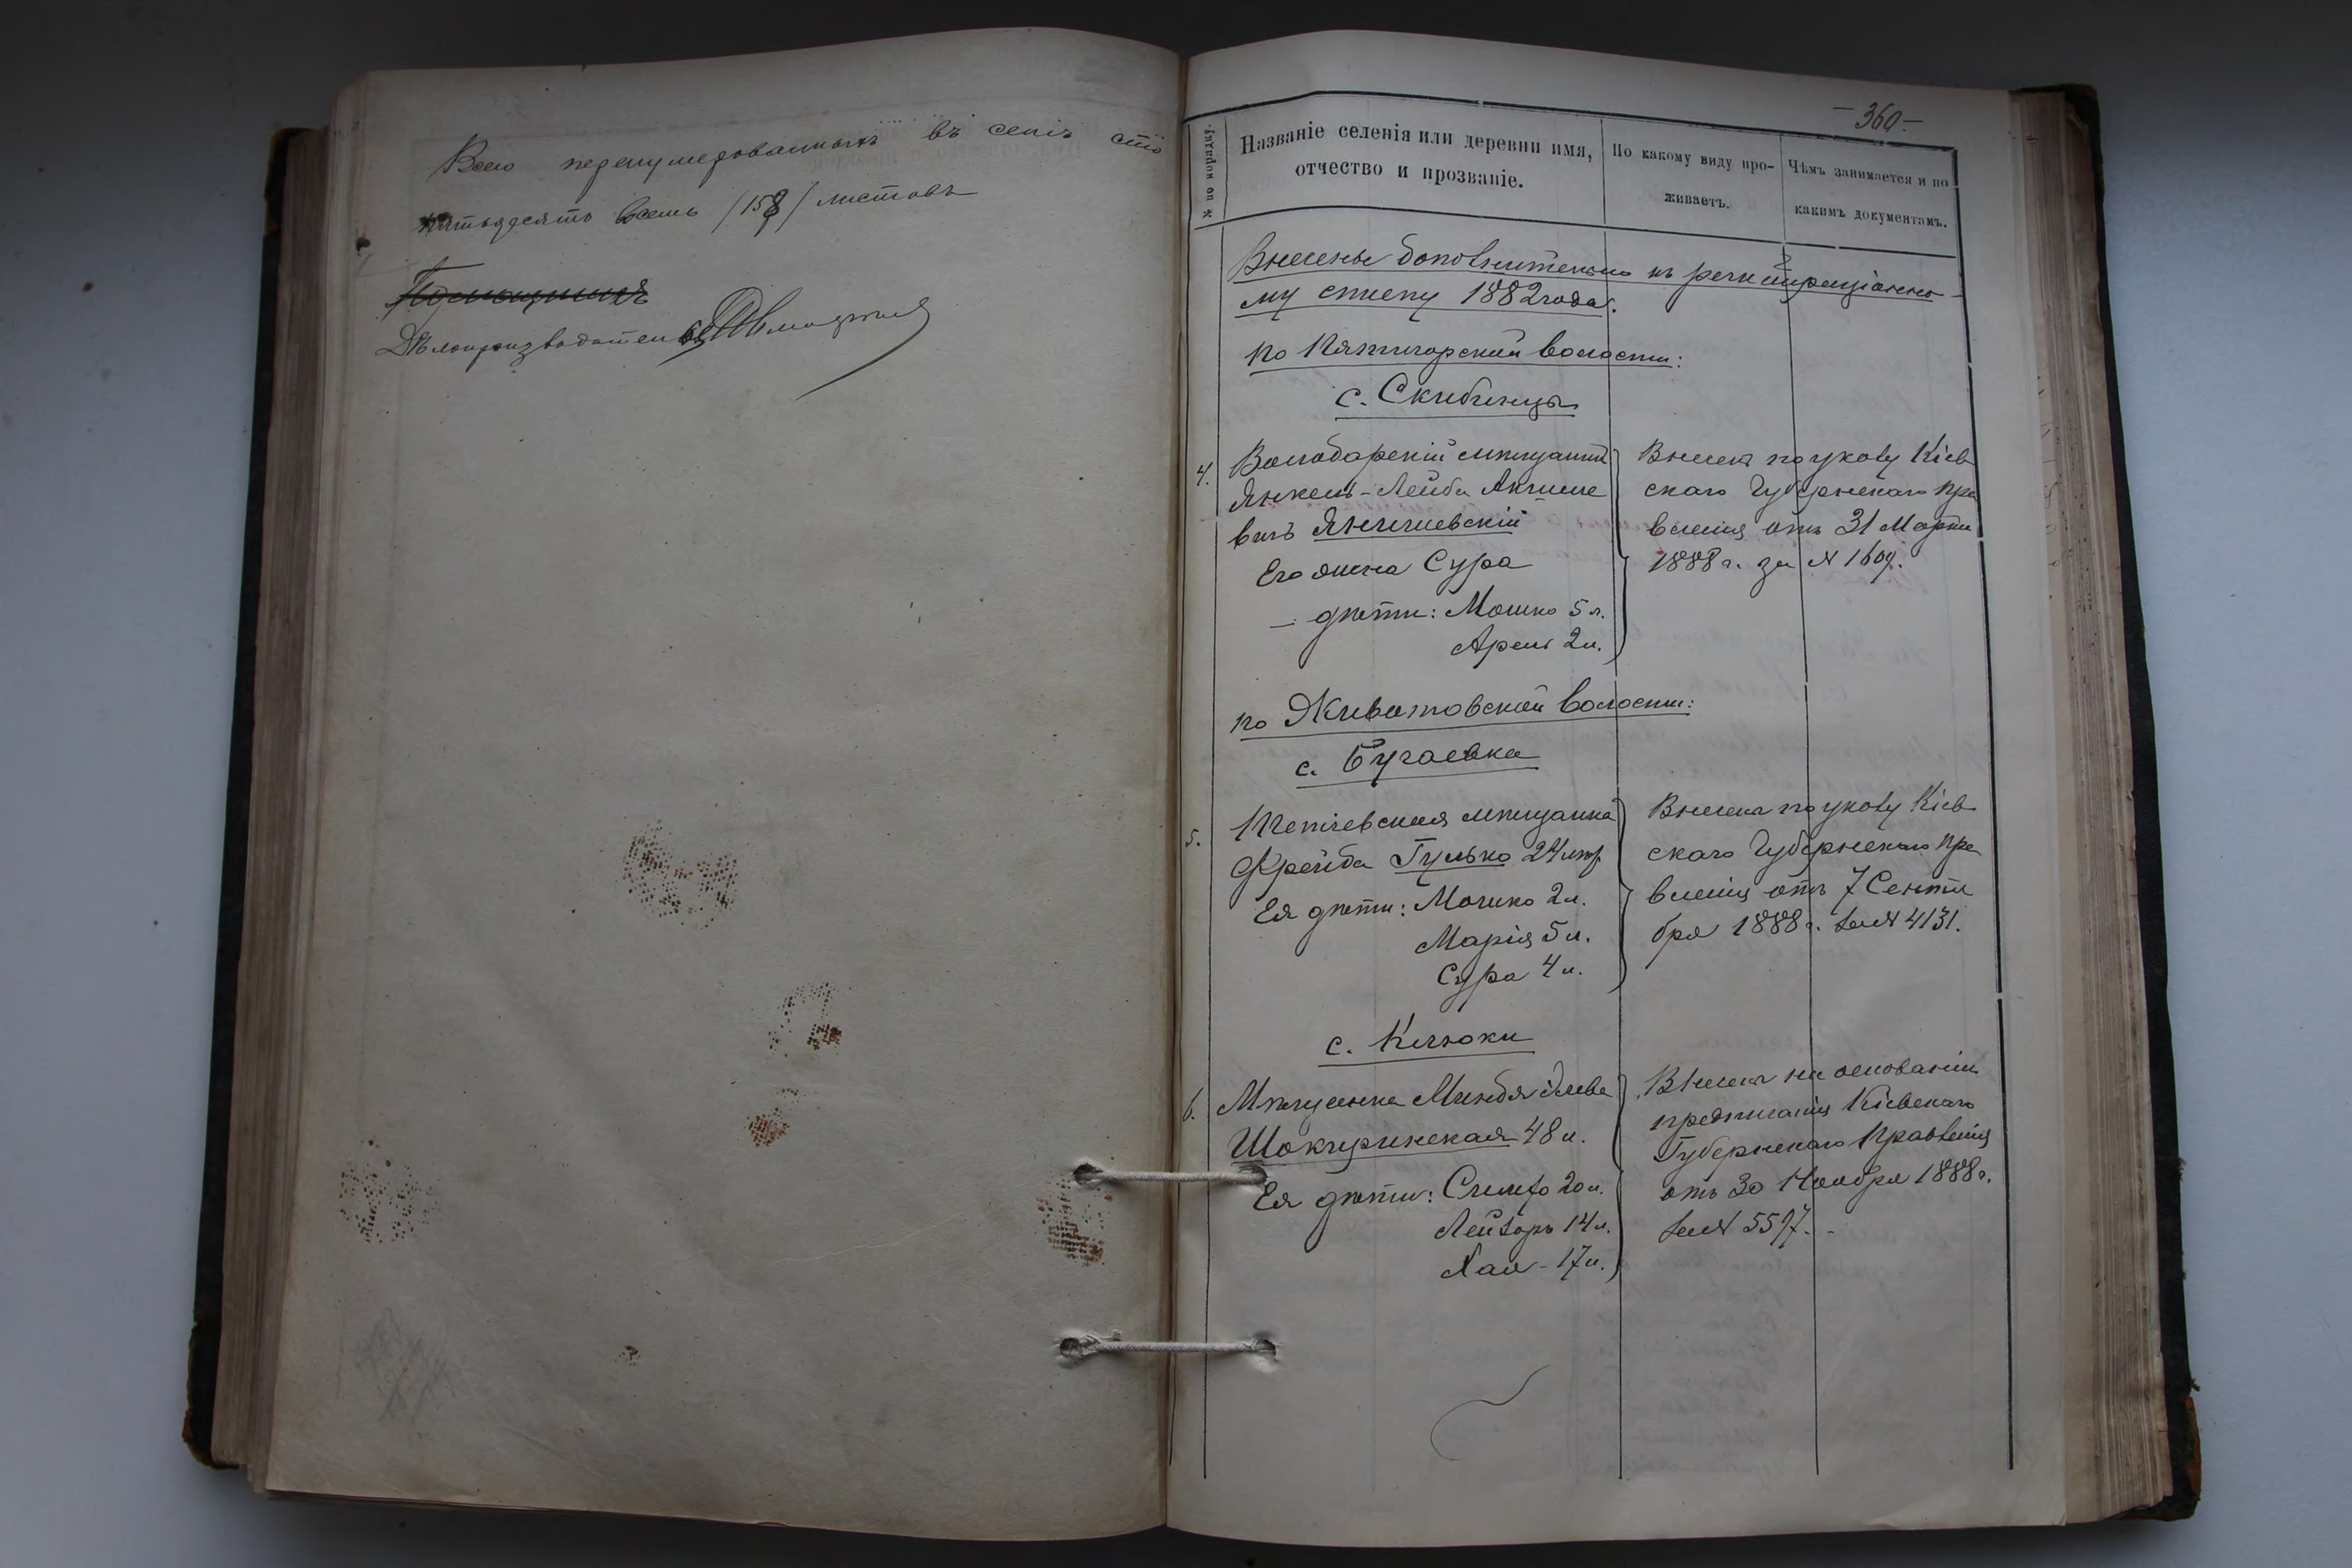 Всего перенумерованныхъ въ семъ сто
пятьдесятъ восемь /158/ листовъ
Помощникъ
Дѣлопроизводитель
-360-
№ по порядку.
Названіе селенія или деревни имя,
отчество и прозваніе.
По какому виду про-
живаетъ.
Чѣмъ занимается и по
какимъ документамъ.
Внесены дополнительно къ регистраціонно-
му списку 1882 года.
по Пятигорской волости:
с. Скибинцы
4.
Володарскій мѣщанинъ
Янкель-Лейба
вичъ Янишевскій
Его жена Сура
— дѣти: Мошко 5 л.
Арон 2 л.
Внесенъ по указу Кіев
скаго Губернскаго Пра
вленія отъ 31 Марта
1888 г. за № 1609.
по Животовской волости:
с. Бугаевка
5.
Тетіевская мѣщанка
Фрейда Гулько 24 лѣт
Ея дѣти: Мошко 2 л.
Марія 5 л.
Сура 4 л.
Внесена по указу Кіев
скаго Губернскаго Пра
вленія отъ 7 Сентя
бря 1888 г. за № 4131.
с. Клюки
6.
Мѣщанка Миндля
Шокиринская 48 л.
Ея дѣти: 20 л.
Лейзоръ 14 л.
Хая - 17 л.
Внесена на основаніи
предписанія Кіевскаго
Губернскаго Правленія
отъ 30 Ноября 1888 г.
за № 5597.-